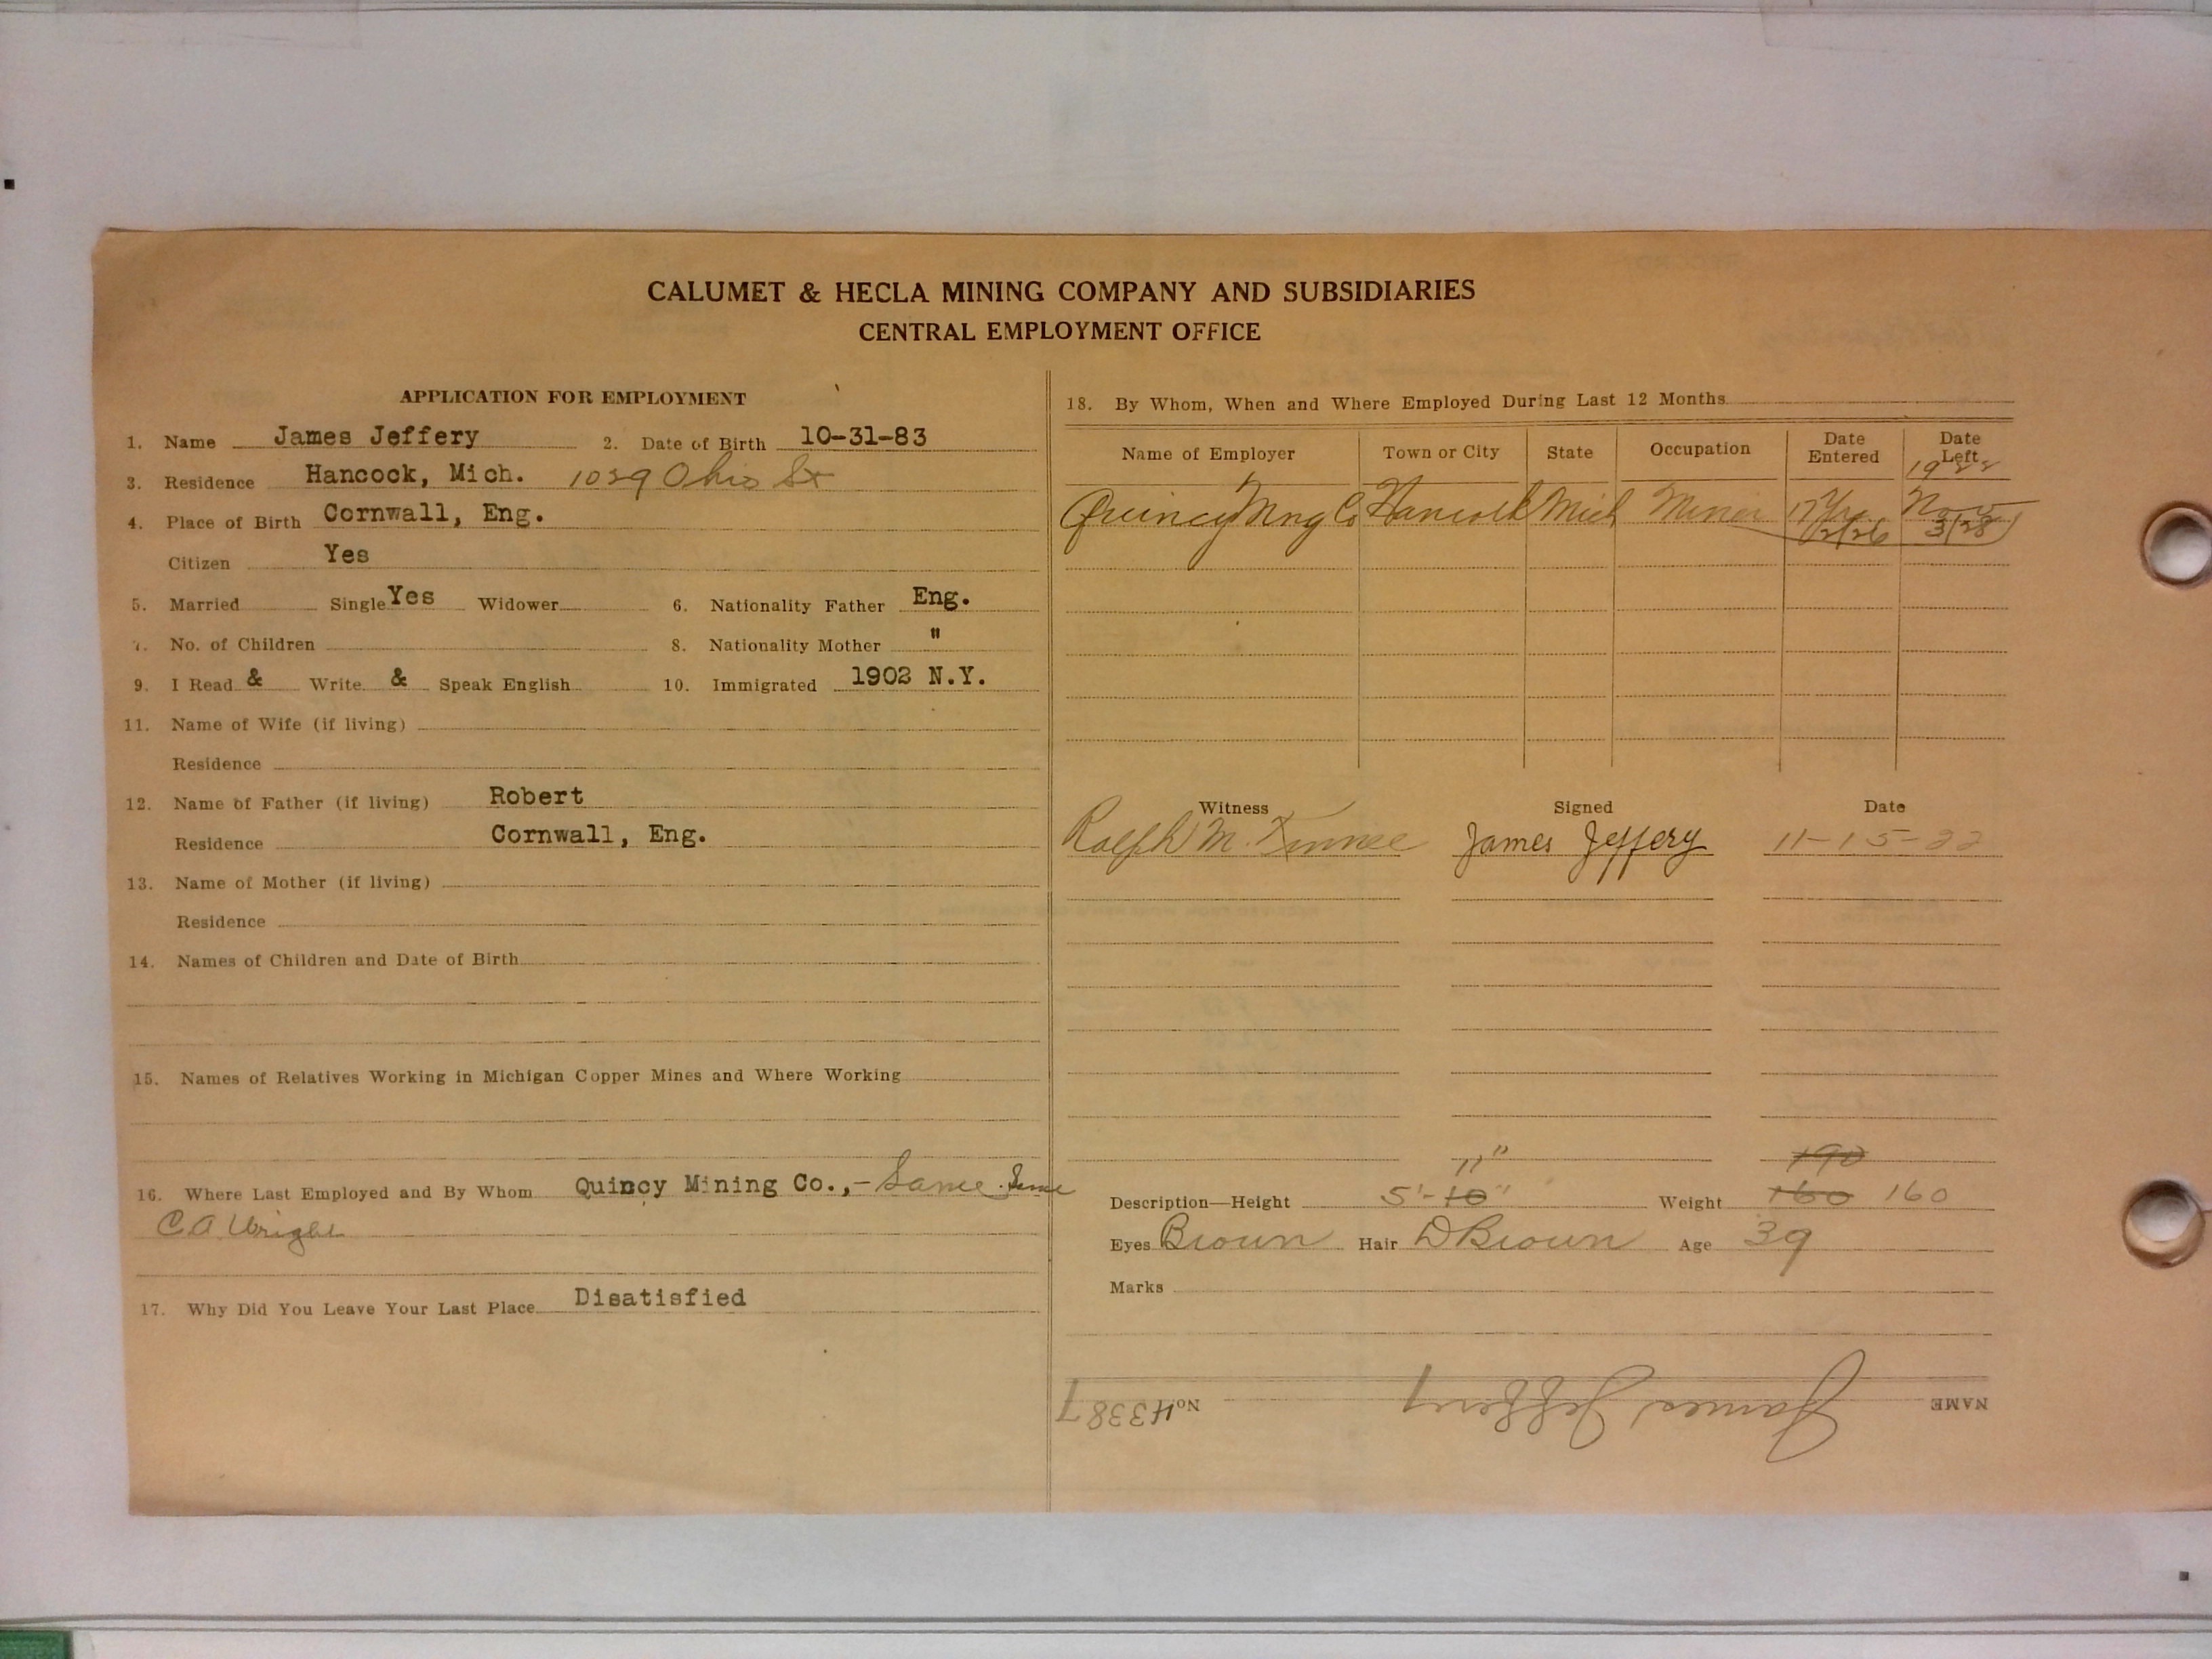 CALUMET & HECLA MINING COMPANY AND SUBSIDIARIES
CENTRAL EMPLOYMENT OFFICE
APPLICATION FOR EMPLOYMENT
1. Name James Jeffery 2. Date of Birth 10-31-83
3. Residence Hancock, Mich. 1029 Ohio St
4. Place of Birth Cornwall, Eng.
Citizen Yes
5. Married Single Yes Widower 6. Nationality Father Eng.
7. No. of Children 8. Nationality Mother "
9. I Read & Write & Speak English 10. Immigrated 1902 N.Y.
11. Name of Wife (if living)
Residence
12. Name of Father (if living) Robert
Residence Cornwall, Eng.
13. Name of Mother (if living)
Residence
14. Names of Children and Date of Birth
15. Names of Relatives Working in Michigan Copper Mines and Where Working
16. Where Last Employed and By Whom Quincy Mining Co.,- Same. Same
C A Wright
17. Why Did You Leave Your Last Place Disatisfied
18. By Whom, When and Where Employed During Last 12 Months
Name of Employer Town or City State Occupation Date Entered Date Left
1922
Quincy Mng Co Hancock Mich Miner 17 Yrs Nov
2/26 3/28
Witness Signed Date
Ralph M. James Jeffery 11-15-22
11" 190
Description—Height 5'-10" Weight 160 160
Eyes Brown Hair D Brown Age 39
Marks
NAME James Jeffery No. H3387